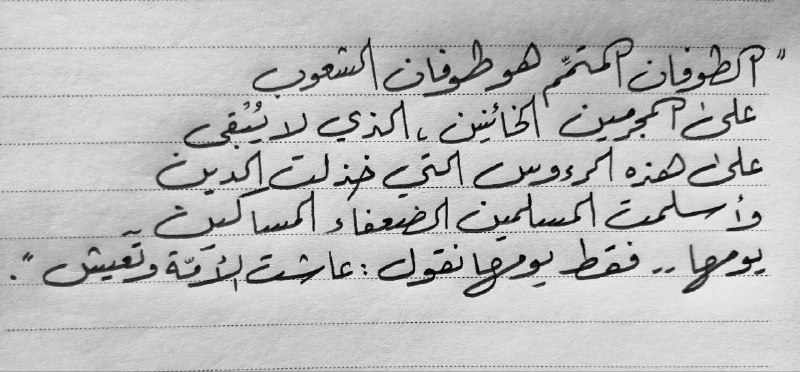 "الطوفان المتمِّم هو طوفان الشعوب
على المجرمين الخائنين، الذي لا يُبْقي
على هذه الرءوس التي خذلت الدين
وأسلمت المسلمين الضعفاء المساكين
يومها .. فقط يومها نقول: عاشت الأمّة وتَعيش".